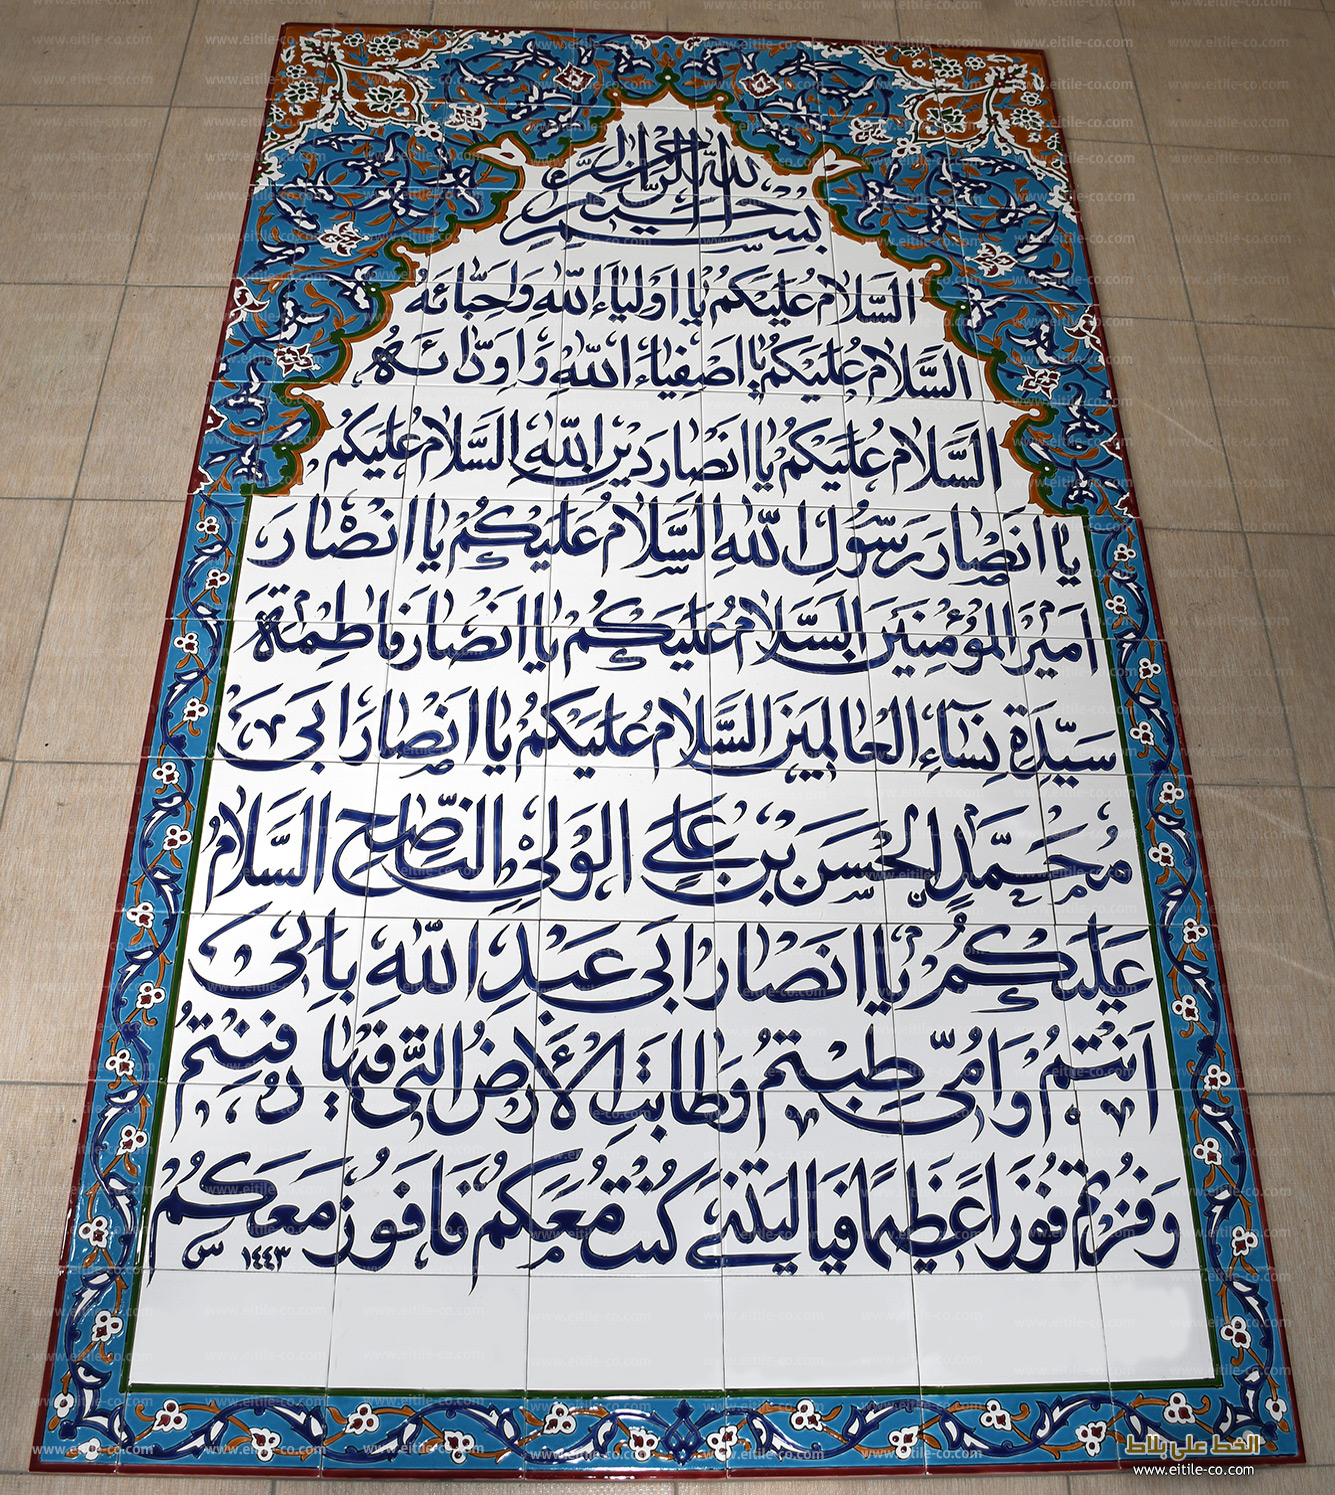 بسم الله الرحمن الرحيم
السَّلامُ عَلَيْكُمْ يا اَوْلِياءَ اللهِ وَاَحِبّائَهُ
السَّلامُ عَلَيْكُمْ يا اَصْفِياءَ اللهِ وَ اَوِدّائَهُ
السَّلامُ عَلَيْكُمْ يا اَنْصارَ دِيْنِ اللهِ السَّلامُ عَلَيْكُمْ
يا اَنْصارَ رَسُوْلِ اللهِ السَّلامُ عَلَيْكُمْ يا اَنْصارَ
اَمِيْرِ الْمُؤْمِنِيْنَ السَّلامُ عَلَيْكُمْ يا اَنْصارَ فاطِمَةَ
سَيِّدَةِ نِسآءِ الْعالَمِيْنَ السَّلامُ عَلَيْكُمْ يا اَنْصارَ اَبي
مُحَمَّدٍ الْحَسَنِ بْنِ عَلِيٍّ الْوَلِيِّ النّاصِحِ السَّلامُ
عَلَيْكُمْ يا اَنْصارَ اَبي عَبْدِ اللهِ بِاَبي
اَنْتُمْ وَ اُمّي طِبْتُمْ وَ طابَتِ الْأَرْضُ الَّتي فيها دُفِنْتُمْ
وَ فُزْتُمْ فَوْزًا عَظيمًا فَيا لَيْتَني كُنْتُ مَعَكُمْ فَاَفُوْزَ مَعَكُمْ
١٤٤٣ س
الخط على بلاط
www.eitile-co.com